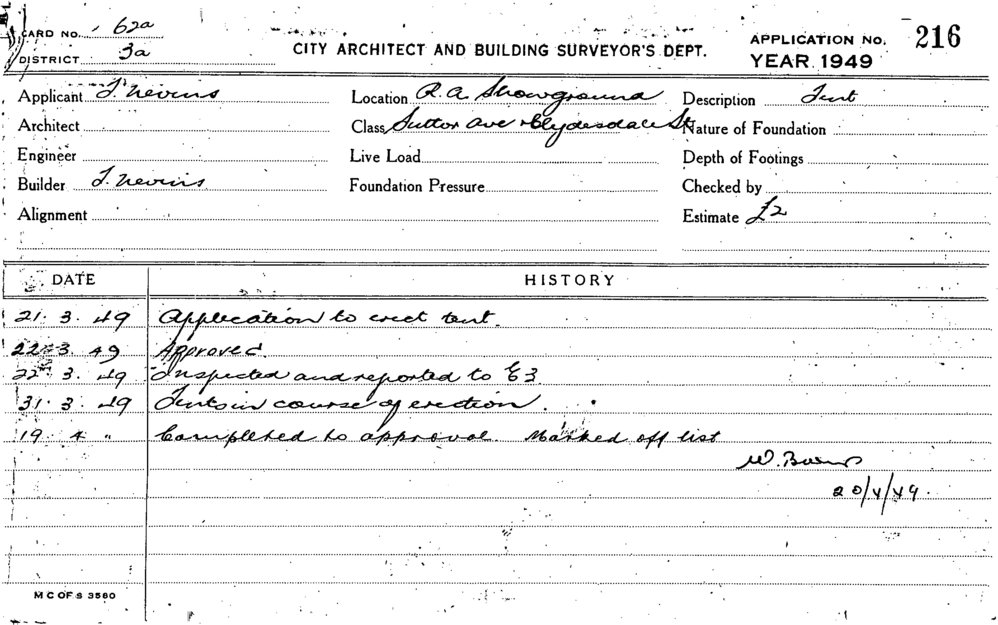 CARD No. 62a
DISTRICT 3a
CITY ARCHITECT AND BUILDING SURVEYOR'S DEPT.
APPLICATION No. 216
YEAR 1949
Applicant J. Nevins Location R.A. Showground Description Tent
Architect Class Suttor Ave & Clydesdale St Nature of Foundation
Engineer Live Load Depth of Footings
Builder J. Nevins Foundation Pressure Checked by
Alignment Estimate £2
DATE HISTORY
21. 3. 49 Application to erect tent.
22. 3. 49 Approved.
22. 3. 49 Inspected and reported to E3
31. 3. 49 Tents in course of erection.
19. 4 " Completed to approval. Marked off list
W.
20/4/49.
M C OF S 3580